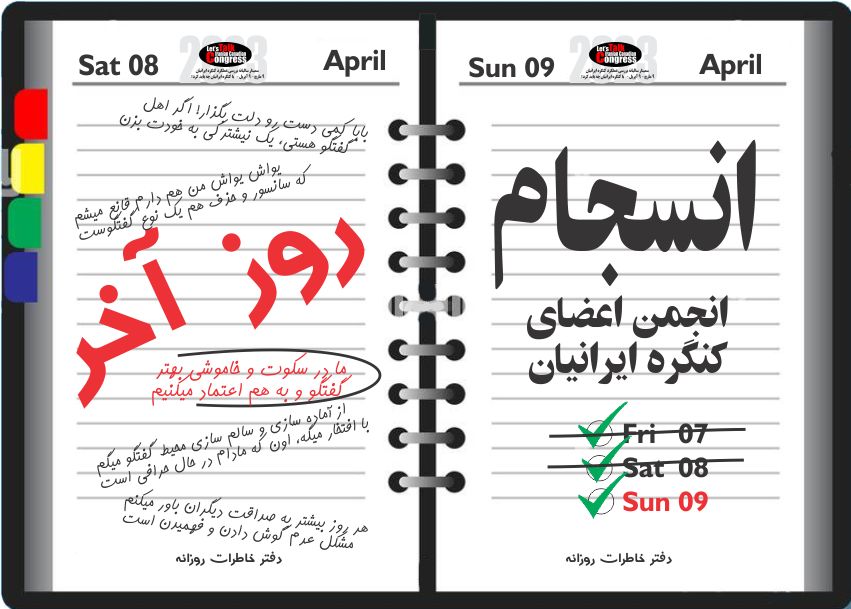 Sat 08
April
2023
Let's Talk
Iranian Canadian
Congress
بابا کمی دست رو دلت بگذار! اگر اهل
گفتگو هستی، یک نیشترکی به خودت بزن
یواش یواش من هم دارم قانع میشم
که سانسور و حذف هم یک نوع گفتگوست
روز آخر
ما در سکوت و خاموشی بهتر
گفتگو و به هم اعتماد میکنیم
از آماده سازی و سالم سازی محیط گفتگو میگم
با افتخار میگه، اون که مادام در حال حرافی است
هر روز بیشتر به صداقت دیگران باور میکنم
مشکل عدم گوش دادن و فهمیدن است
دفتر خاطرات روزانه
Sun 09
April
2023
Let's Talk
Iranian Canadian
Congress
انسجام
انجمن اعضای
کنگره ایرانیان
Fri 07
Sat 08
Sun 09
دفتر خاطرات روزانه